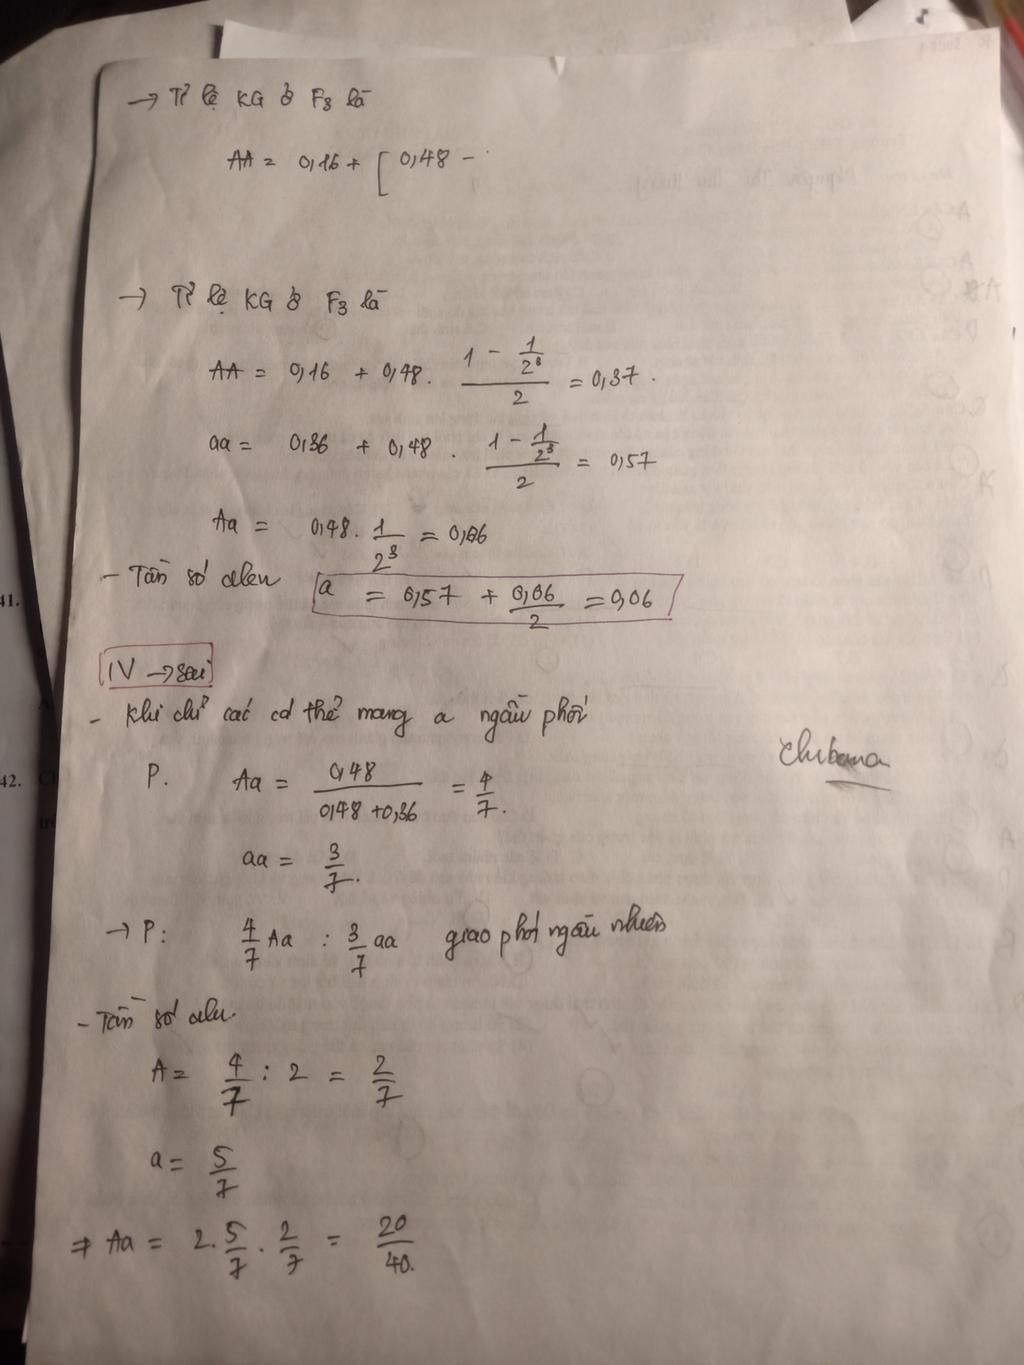 → Tỉ lệ KG ở F3 là
AA = 0,16 + [ 0,48 -
→ Tỉ lệ KG ở F3 là
AA = 0,16 + 0,48 . (1 - 1/2^3)/2 = 0,37 .
aa = 0,36 + 0,48 . (1 - 1/2^3)/2 = 0,57
Aa = 0,48 . 1/2^3 = 0,06
- Tần số alen a = 0,57 + 0,06/2 = 0,06
IV → sai
- Khi chỉ các cá thể mang a ngẫu phối
P. Aa = 0,48/(0,48 + 0,36) = 4/7 .
aa = 3/7 .
→ P: 4/7 Aa : 3/7 aa giao phối ngẫu nhiên
- Tần số alen.
A = 4/7 : 2 = 2/7
a = 5/7
⇒ Aa = 2. 5/7 . 2/7 = 20/40.
41.
42.